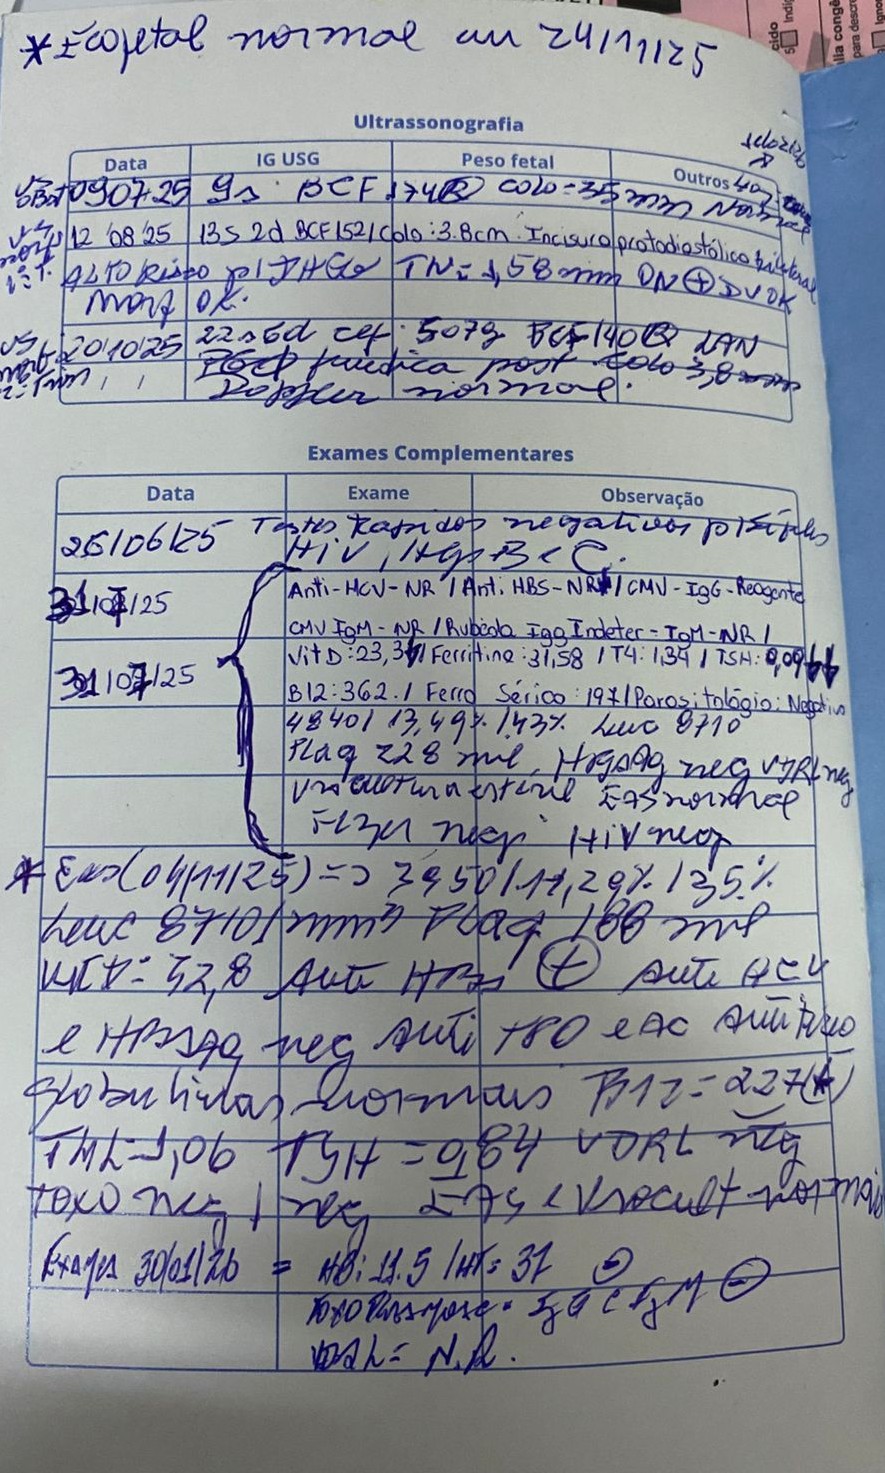 * Ecofetal normal em 24/11/25
Ultrassonografia
Data IG USG Peso fetal Outros
09 07 25 9s BCF 174 colo = 35 mm
12 08 25 13s 2d BCF 152 / Colo: 3.8cm. Incisura protodiastólica bilateral
ALTO Risco p/ DHEG TN = 1,58 mm ON + DV OK
Morf OK.
20 10 25 22s6d cef. 507g BCF 140 LAN
post colo 3,8
Doppler normal.
Exames Complementares
Data Exame Observação
26/06/25 Testes Rapidos negativos p/ Sífilis
HiV, Hep B e C.
/25 Anti-HCV-NR / Anti HBS-NR / CMV-IgG-Reagente
CMV IgM-NR / Rubéola Igg Indeter-IgM-NR /
31/07/25 Vit D: 23,3 / Ferritina: 31,58 / T4: 1,34 / TSH:
B12: 362. / Ferro Sérico: 197 / Parasitológio: Negativo
4840 / 13,49% / 43% Leuc 8710
Plaq 228 mil HBsAg neg VDRL neg
Urocultura estéril EAS normal
neg HiV neg
* Exs (04/11/25) => 3950 / 11,29% / 35%
Leuc 8710/mm³ Plaq 188 mil
VitD = 32,8 Anti HBs + Anti HCV
e HBsAg neg Anti TPO e AC Anti Tireo
globulinas normais B12 = 227
T4L = 1,06 TSH = 0,84 VDRL neg
Toxo neg / neg EAS e Urocult normais
Exames 30/01/26 = HB: 11.5 / HT: 37
Toxoplasmose = IgG e IgM -
VDRL = N.R.